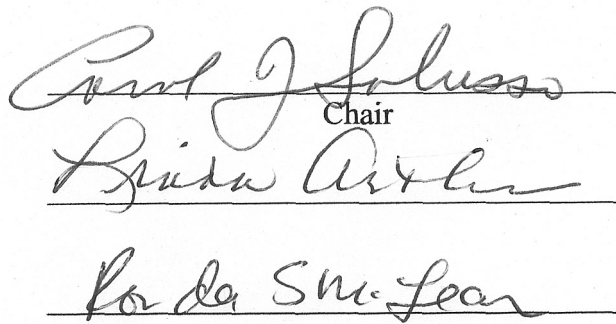 Carol J Salusso
Chair
Linda Arthur
Ronda S McLean